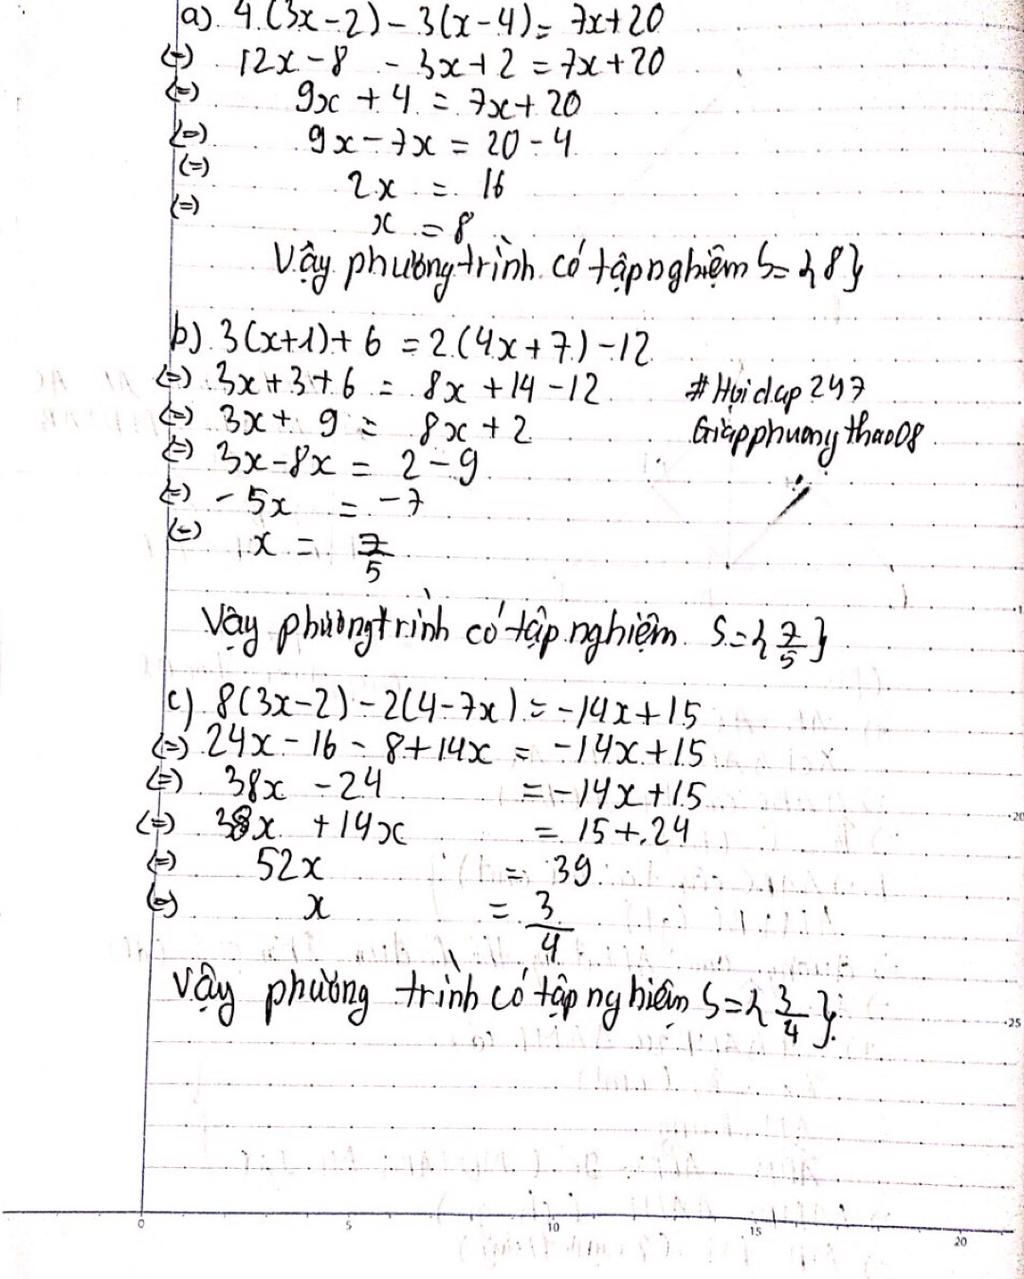 a). 4.(3x-2) - 3(x-4) = 7x+20
(=) 12x-8 - 3x+2 = 7x+20
(=) 9x + 4 = 7x+ 20
(=) 9x-7x = 20-4
(=) 2x = 16
(=) x = 8
Vậy phương trình có tập nghiệm S= {8}
b). 3(x+1)+ 6 = 2.(4x+7.) -12
(=) 3x+3+6 = 8x +14 -12
#Hoidap247
(=) 3x+ 9 = 8x+2
Giapphuongthao08
(=) 3x-8x = 2-9
(=) -5x = -7
(=) x = 7/5
Vậy phương trình có tập nghiệm S={7/5}
c). 8(3x-2) - 2(4-7x) = -14x+15
(=) 24x - 16 - 8+14x = -14x+15
(=) 38x -24 = -14x+15
(=) 38x +14x = 15+24
(=) 52x = 39
(=) x = 3/4
Vậy phương trình có tập nghiệm S={3/4}.
20
25
0 5 10 15 20